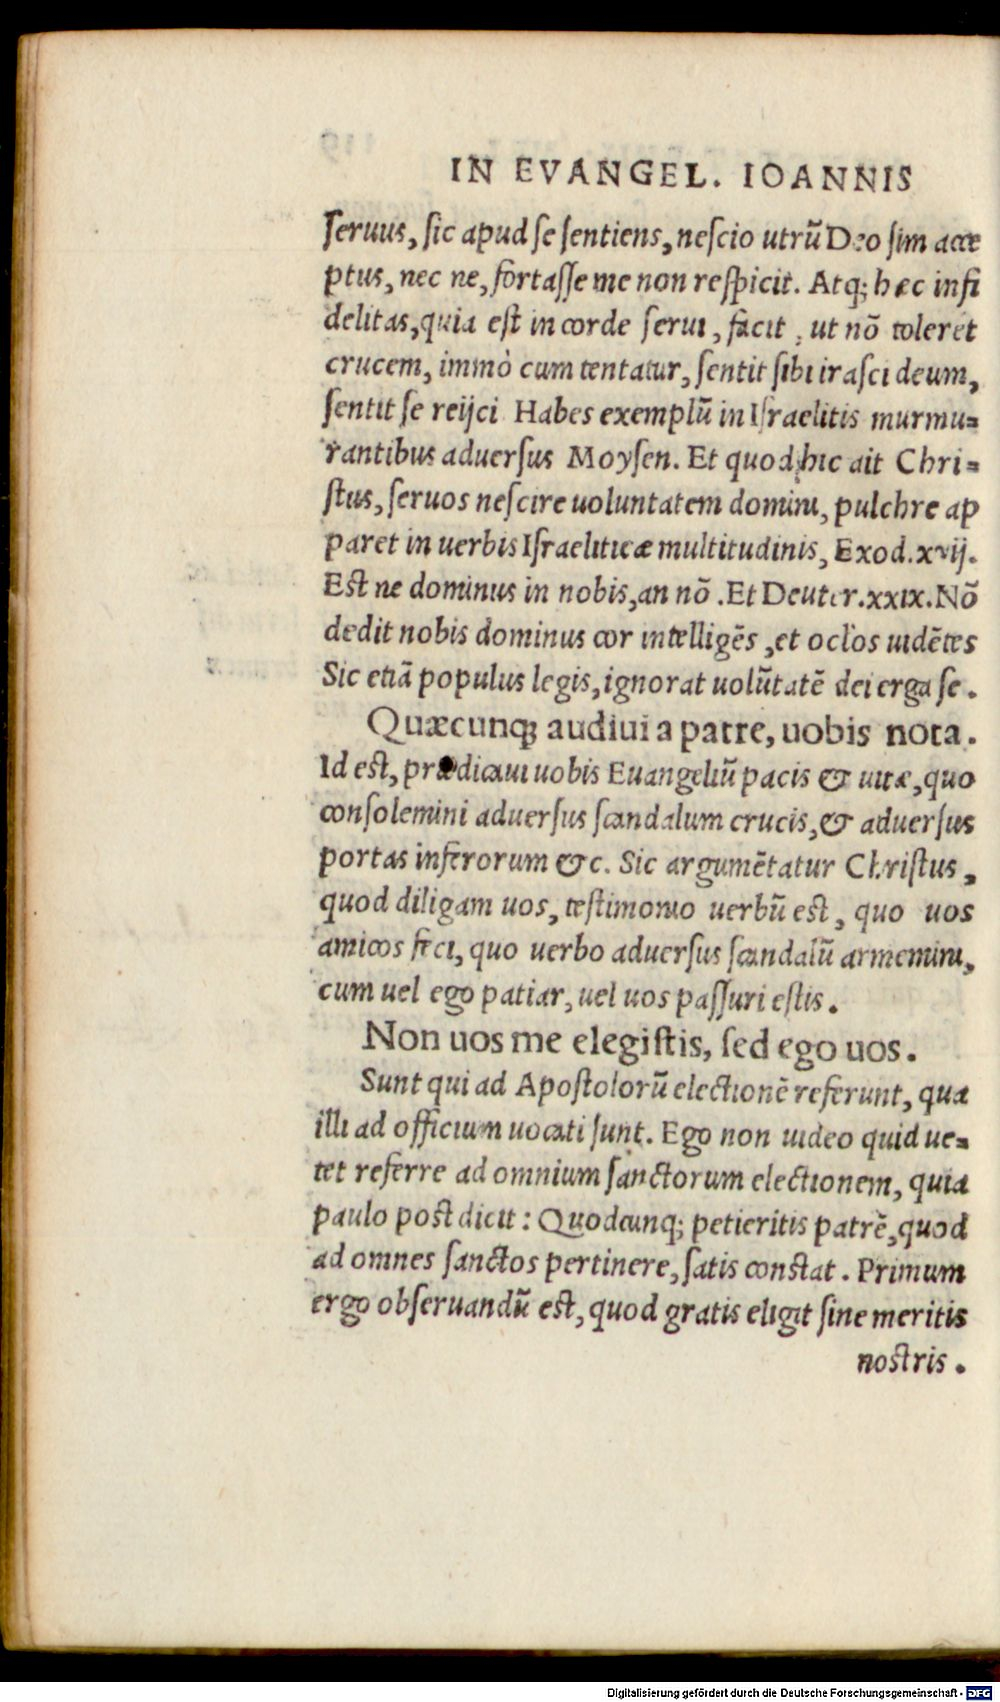 IN EVANGEL. IOANNIS
ſeruus, ſic apud ſe ſentiens, neſcio utrũ Deo ſim acce
ptus, nec ne, fortaſſe me non reſpicit. Atq; hæc infi
delitas, quia eſt in corde ſerui, facit, ut nõ toleret
crucem, immò cum tentatur, ſentit ſibi iraſci deum,
ſentit ſe reijci Habes exemplũ in Iſraelitis murmu-
rantibus aduerſus Moyſen. Et quod hic ait Chri-
ſtus, ſeruos neſcire uoluntatem domini, pulchre ap
paret in uerbis Iſraeliticæ multitudinis, Exod. xvij.
Eſt ne dominus in nobis, an nõ. Et Deuter. xxix. Nõ
dedit nobis dominus cor intelligẽs, et ocl'os uidẽtes
Sic etiã populus legis, ignorat uolũtatẽ dei erga ſe.
Quæcunq; audiui a patre, uobis nota.
Id eſt, prædicaui uobis Euangeliũ pacis & uitæ, quo
conſolemini aduerſus ſcandalum crucis, & aduerſus
portas inferorum &c. Sic argumẽtatur Chriſtus,
quod diligam uos, teſtimonio uerbũ eſt, quo uos
amicos feci, quo uerbo aduerſus ſcandalũ armemini,
cum uel ego patiar, uel uos paſſuri eſtis.
Non uos me elegiſtis, ſed ego uos.
Sunt qui ad Apoſtolorũ electionẽ referunt, qua
illi ad officium uocati ſunt. Ego non uideo quid ue-
tet referre ad omnium ſanctorum electionem, quia
paulo poſt dicit: Quodcunq; petieritis patrẽ, quod
ad omnes ſanctos pertinere, ſatis conſtat. Primum
ergo obſeruandũ eſt, quod gratis eligit ſine meritis
noſtris.
Digitalisierung gefördert durch die Deutsche Forschungsgemeinschaft - DFG